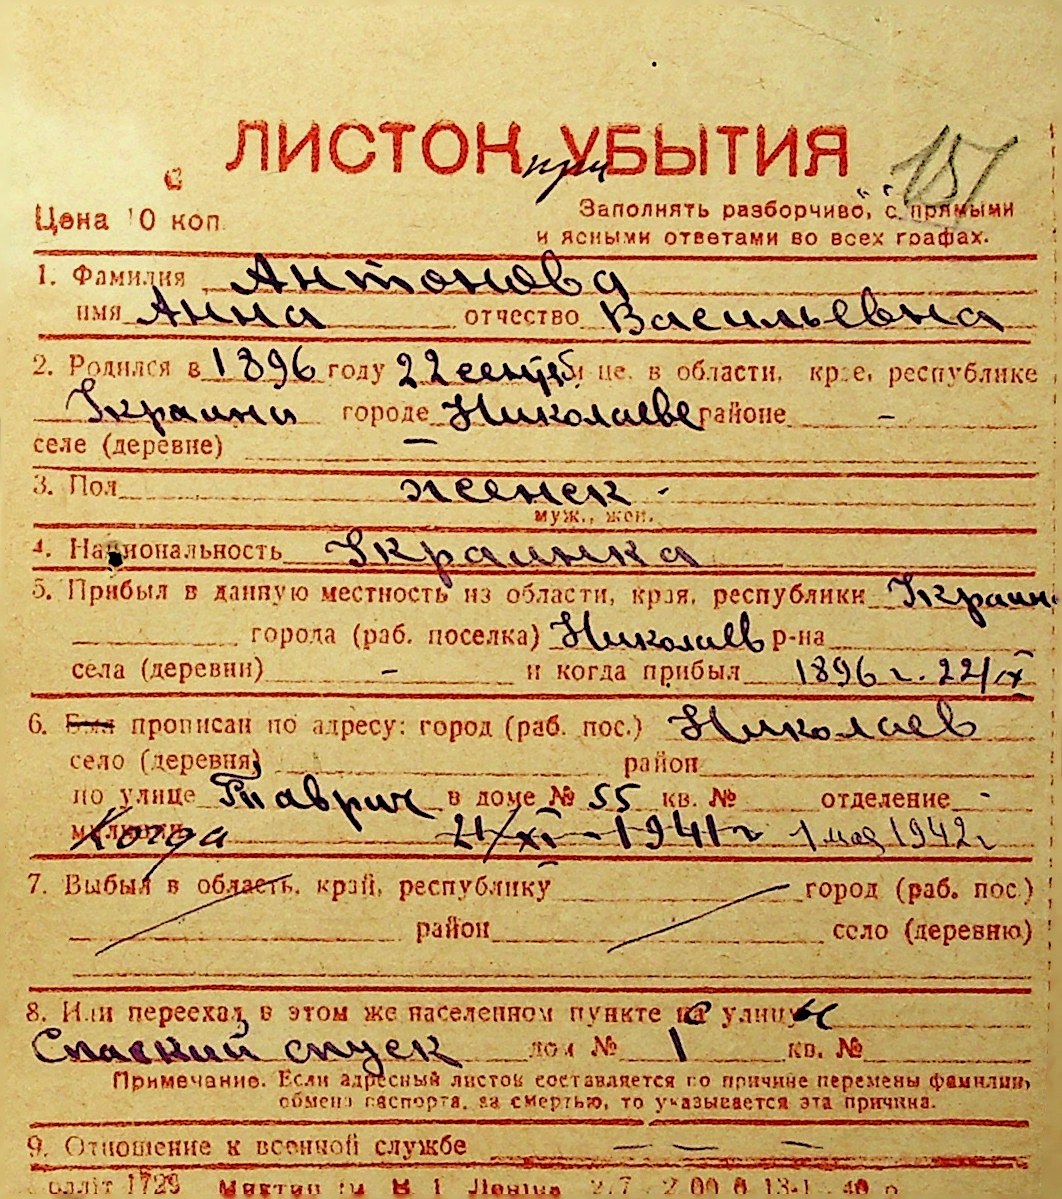 ЛИСТОК при УБЫТИЯ 151
Цена 10 коп.
Заполнять разборчиво, с прямыми
и ясными ответами во всех графах.
1. Фамилия Антонова
имя Анна отчество Васильевна
2. Родился в 1896 году 22 сентяб в области, крае, республике
Украини городе Николаеве районе -
селе (деревне) -
3. Пол женск -
муж., жен.
4. Национальность Украинка
5. Прибыл в данную местность из области, края, республики Украин.
города (раб. поселка) Николаев р-на
села (деревни) - и когда прибыл 1896 г. 22/IX
6. Был прописан по адресу: город (раб. пос.) Николаев
село (деревня) район
по улице Таврич в доме № 55 кв. № отделение -
милиции Когда 21/XI - 1941 г 1 мая 1942 г
7. Выбыл в область, край, республику город (раб. пос.)
район село (деревню)
8. Или переехал в этом же населенном пункте с улицы
Спаский спуск дом № 1 кв. №
Примечание. Если адресный листок составляется по причине перемены фамилии,
обмена паспорта, за смертью, то указывается эта причина.
9. Отношение к военной службе — — —
оллiт 1729 Миктип iм В. I. Ленiна